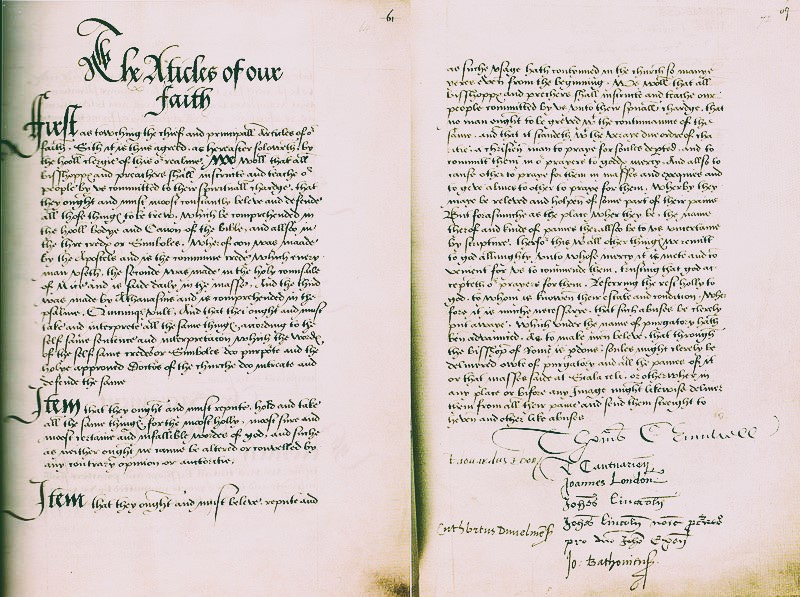 61
The Aticles of our
faith
First as towching the chief and principall Articles of oʳ
faith. Sith it is thus agreed, as hereafter foloweth, by
the hooll clergie of this oʳ realme, We woll that all
bisshopps and preachers shall instructe and teache oʳ
people by vs committed to their spirituall chardge, that
they ought and must moost constantly beleve and defende
all those things to be trewe, which be comprehended in
the hooll bodye and Canon of the bible, and allso in
the three credes or Simboles, wherof oon was maade
by the Apostels and is the commune crede which every
man useth, the seconde was made in the holy counsaile
of Nice and is saide daily in the masse, And the third
was made by Athanasius and is comprehended in the
psalme, Quicunque vult, And that they ought and must
take and interprete all the same things, according to the
self same sentence and interpretation, which the words
of the self same credes or Simboles doo purporte and the
holye approved Doctors of the churche doo intreate and
defende the same
Item that they ought and must repute, hold and take
all the same things for the moost holly, moost sure and
moost certaine and infallible words of god, and suche
as neither ought ne canne be altered or convelled by
any contrary opinion or auctoritie,
Item that they ought and must beleve, repute and
as suche usage hath contynued in the church so manye
yeres even from the beginning. We woll that all
bisshopps and prechers shall instructe and teache our
people committed by vs vnto their spirituall chardge, that
no man ought to be greved wᵗ the contynuance of the
same, and that it standeth wᵗ the verave due ordre of cha
rite, a christen man to pray for soules depted, and to
committ them in oʳ prayers to godds mercy, And allso to
cause other to praye for them in masses and exequies and
to geve almes to other to praye for them, wherby they
maye be releved and holpen of some part of their paine
But forasmuche as the place wher they be, the name
therof and kinde of paines ther allso be to vs uncertaine
by scripture, therfor this wᵗ all other things we remitt
to god allmighty, vnto whose mercy it is mete and co
venient for vs to commende them, trusting that god ac
cepteth oʳ prayers for them, Referring the rest holly to
god, to whom is knowen their estate and condition, wher
fore it is muche necessarye, that suche abuses be clerely
put awaye, which under the name of purgatory hath
ben advaunced, As to make men beleve, that through
the bisshop of Rome is pdons, soules might clerely be
delivered owte of purgatory and all the paines of it
or that masses saide at Scala celi, or otherwher in
any place or before any Image might likewise deliver
them from all their paine and send them streight to
heven and other like abuses
Thomas Crumwell
T. Cantuarien
Edouardus Ebor
Joannes London
Johēs Lincoln
Johēs Lincoln noīe pcuraʳ
Cuthbertus Dunelmens
pro dno Johē Exoñ
Jo: Bathoniens